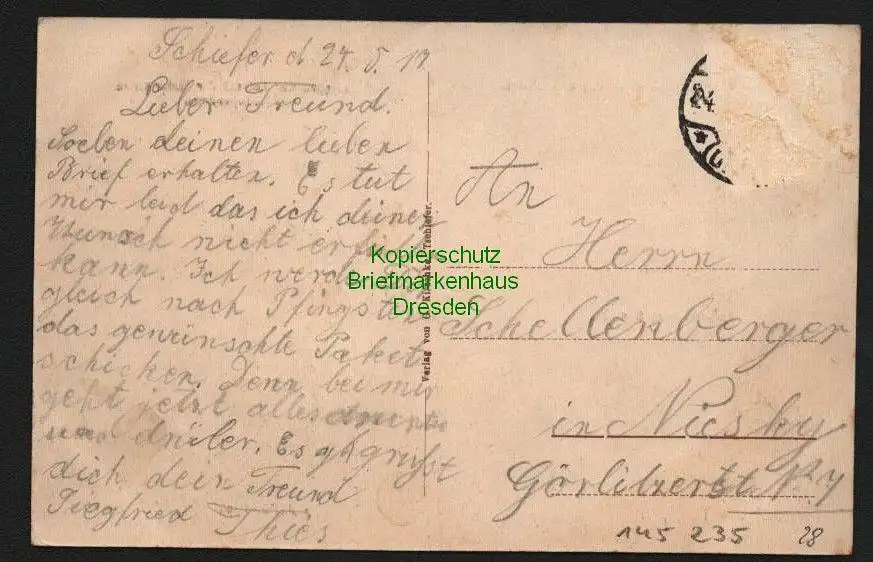 Schiefer d 24. 5. 17
Lieber Freund.
Soeben deinen lieben
Brief erhalten. Es tut
mir leid das ich deinen
Wunsch nicht
kann. Ich werde
gleich nach Pfingsten
das gewünschte Paket
schicken. Denn bei mir
geht jetzt alles drunter
und drüber. Es grüsst
dich dein Freund
Siegfried Thies
Verlag von Tschiefer.
24.
An
Herrn
Schellenberger
in Niesky
Görlitzerst N. 4
145 235
28
Kopierschutz
Briefmarkenhaus
Dresden